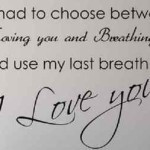 had to choose betwe
Loving you and Breathing
d use my last breath
I Love you